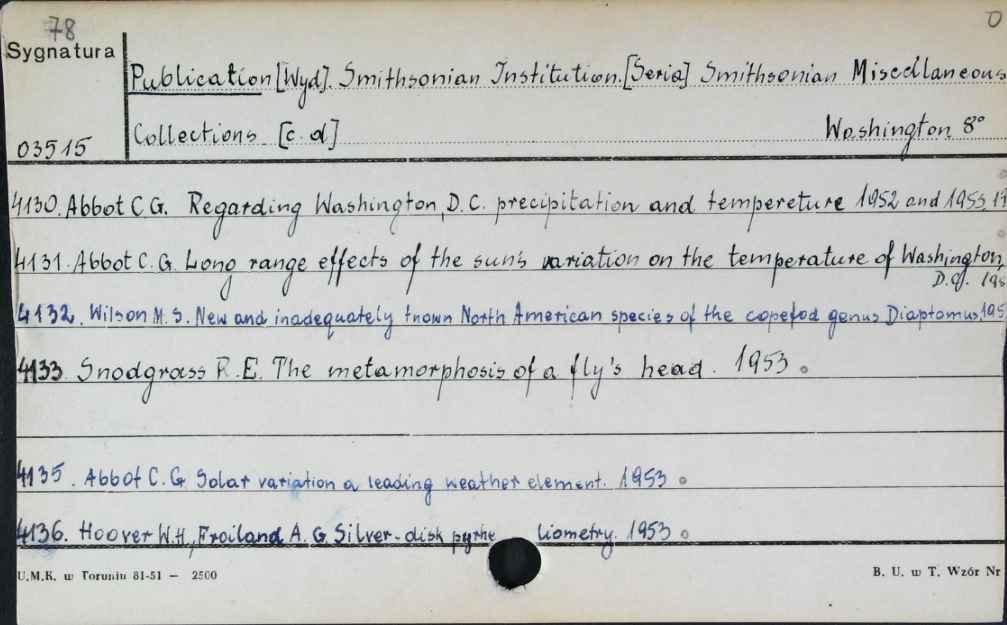 78
0
Sygnatura
Publication [Wyd]. Smithsonian Institution. [Seria] Smithsonian Miscellaneous
03515
Collections [c.d] Washington 8°
4130. Abbot C G. Regarding Washington, D.C. precipitation and tempereture 1952 and 1953
4131. Abbot C. G. Long range effects of the sun's variation on the temperature of Washington
D.C.
4132. Wilson M. S. New and inadequately known North American species of the copepod genus Diaptomus, 195
4133 Snodgrass R.E. The metamorphosis of a fly's head. 1953.
4135. Abbot C. G. Solar variation a leading weather element. 1953
4136. Hoover W.H., Froiland A. G. Silver-disk pyrhe liometry. 1953
U.M.K. w Toruniu 81-51 — 2500
B. U. w T. Wzór Nr